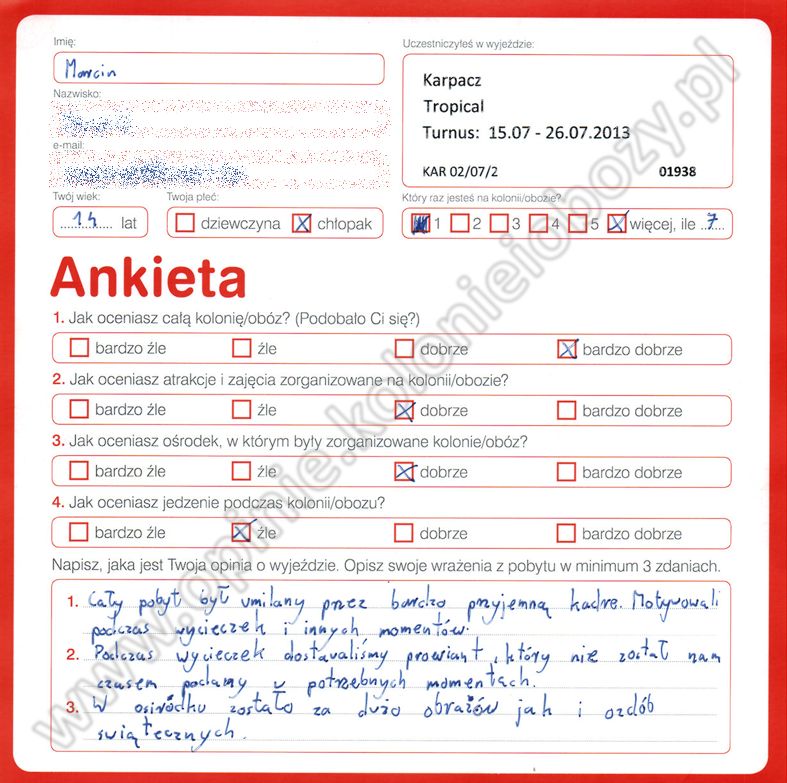 Imię:
Marcin
Uczestniczyłeś w wyjeździe:
Karpacz
Tropical
Turnus: 15.07 - 26.07.2013
KAR 02/07/2 01938
Nazwisko:
e-mail:
Twój wiek:
14 lat
Twoja płeć:
dziewczyna chłopak
Który raz jesteś na kolonii/obozie?
1 2 3 4 5 więcej, ile 7
Ankieta
1. Jak oceniasz całą kolonię/obóz? (Podobało Ci się?)
bardzo źle źle dobrze bardzo dobrze
2. Jak oceniasz atrakcje i zajęcia zorganizowane na kolonii/obozie?
bardzo źle źle dobrze bardzo dobrze
3. Jak oceniasz ośrodek, w którym były zorganizowane kolonie/obóz?
bardzo źle źle dobrze bardzo dobrze
4. Jak oceniasz jedzenie podczas kolonii/obozu?
bardzo źle źle dobrze bardzo dobrze
Napisz, jaka jest Twoja opinia o wyjeździe. Opisz swoje wrażenia z pobytu w minimum 3 zdaniach.
1. Cały pobyt był umilany przez bardzo przyjemną kadre. Motywowali
podczas wycieczek i innych momentów.
2. Podczas wycieczek dostawaliśmy prowiant, który nie został nam
czasem podany w potrzebnych momentach.
3. W ośrodku zostało za dużo obrazów jak i ozdób
świątecznych.
www.opinie.kolonieiobozy.pl